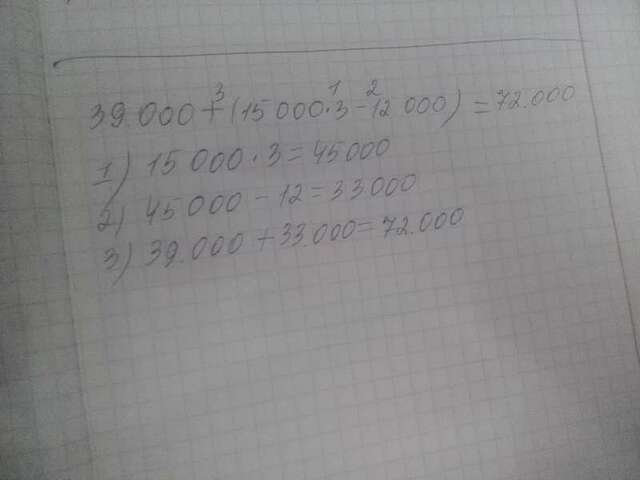 39 000 + (15 000 · 3 - 12 000) = 72.000
3 1 2
1) 15 000 · 3 = 45000
2) 45 000 - 12 = 33000
3) 39.000 + 33.000 = 72.000